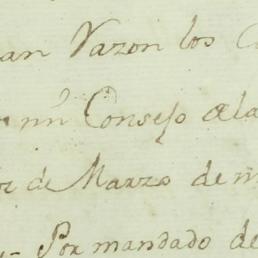 an Vazon los
nro Consejo de la
de Marzo de m
Por mandado de